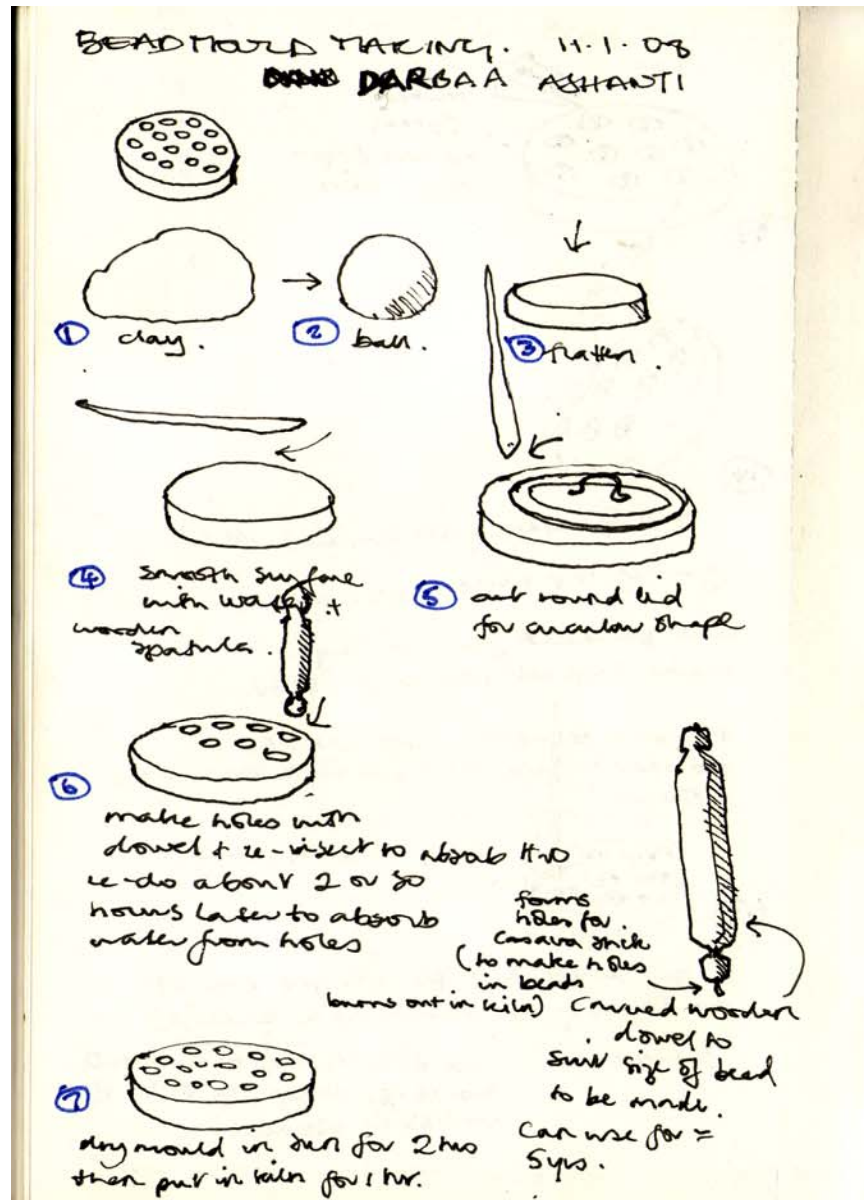 BEAD MOULD MAKING. 11.1.08
DARBAA ASHANTI
① clay.
② ball.
③ flatten.
④ smooth surface
with water +
wooden
spatula.
⑤ cut round lid
for circular shape
⑥
make holes with
dowel + re-insert to absorb H2O
re-do about 2 or so
hours later to absorb
water from holes
forms
holes for
casava stick
(to make holes
in beads
burns out in kiln)
carved wooden
dowel to
suit size of bead
to be made.
Can use for ≈
5yrs.
⑦
dry mould in sun for 2 hrs
then put in kiln for 1 hr.